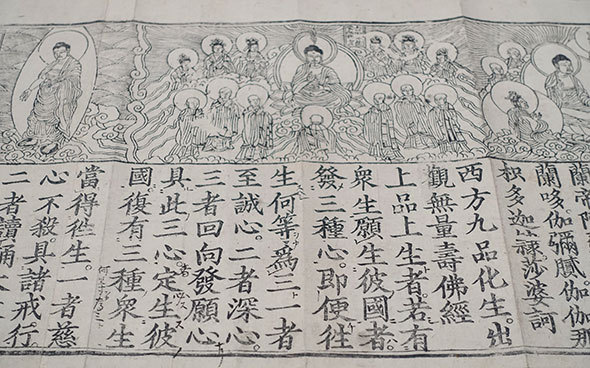 蘭帝
蘭哆伽彌膩伽伽那
枳多迦隸莎婆訶
西方九品化生。出
觀無量壽佛經
上品上生者。若有
衆生願生彼國者。
發三種心。即便往
生何等爲三一者
至誠心。二者深心。
三者回向發願心
具此三心定生彼
國復有三種衆生
當得徃生。一者慈
心不殺。具諸戒行
二者讀誦